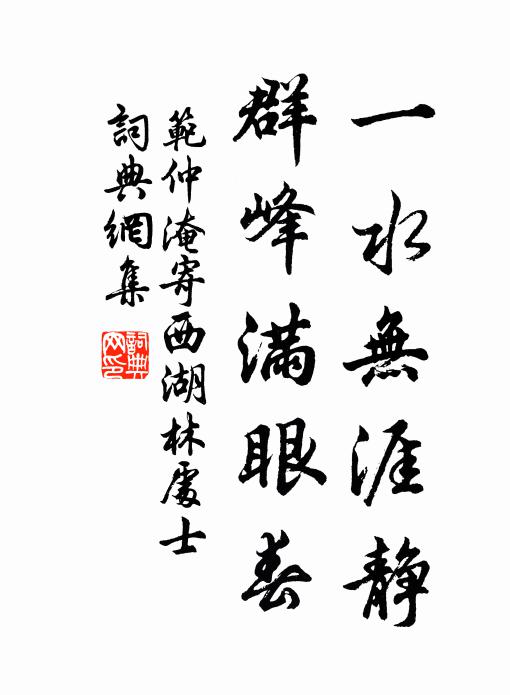 一水無涯静
群峰滿眼春
範仲淹寄西湖林處士
詞典網集
詞典網印